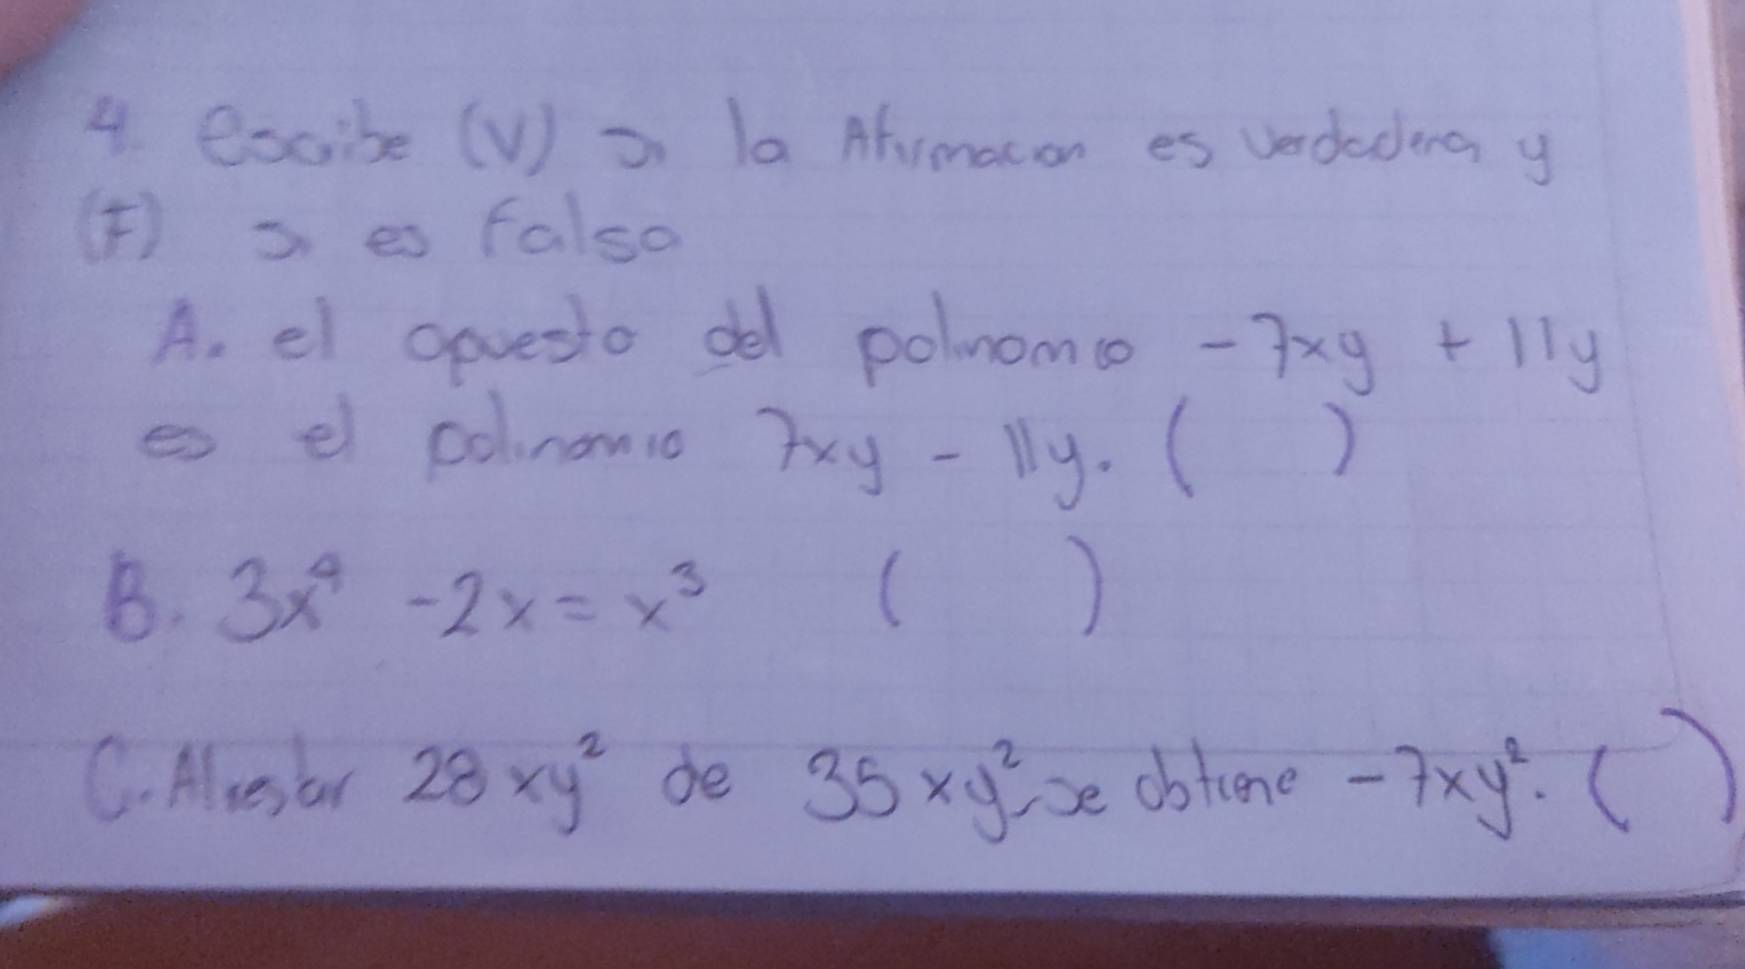 4. escribe (V) si la Afirmacion es verdadera y
(F) si es falsa
A. el opuesto del polinomio -7xy + 11y
es el polinomio 7xy - 11y. ( )
B. 3x⁴ -2x = x³ ( )
C. Al restar 28xy² de 35xy² se obtiene -7xy². ( )